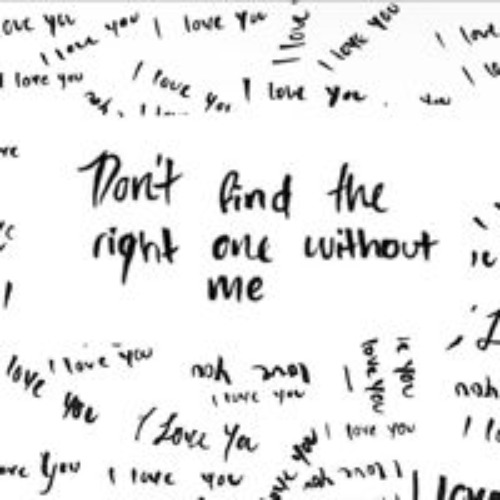 love you
I love you
I love you
I love
I love you
I love
I love you
I love you
I love you
you
Don't find the
right one without
me
I love you
love you
I love you
I love you
love you
I Love You
I love you
love you
I love you
love you